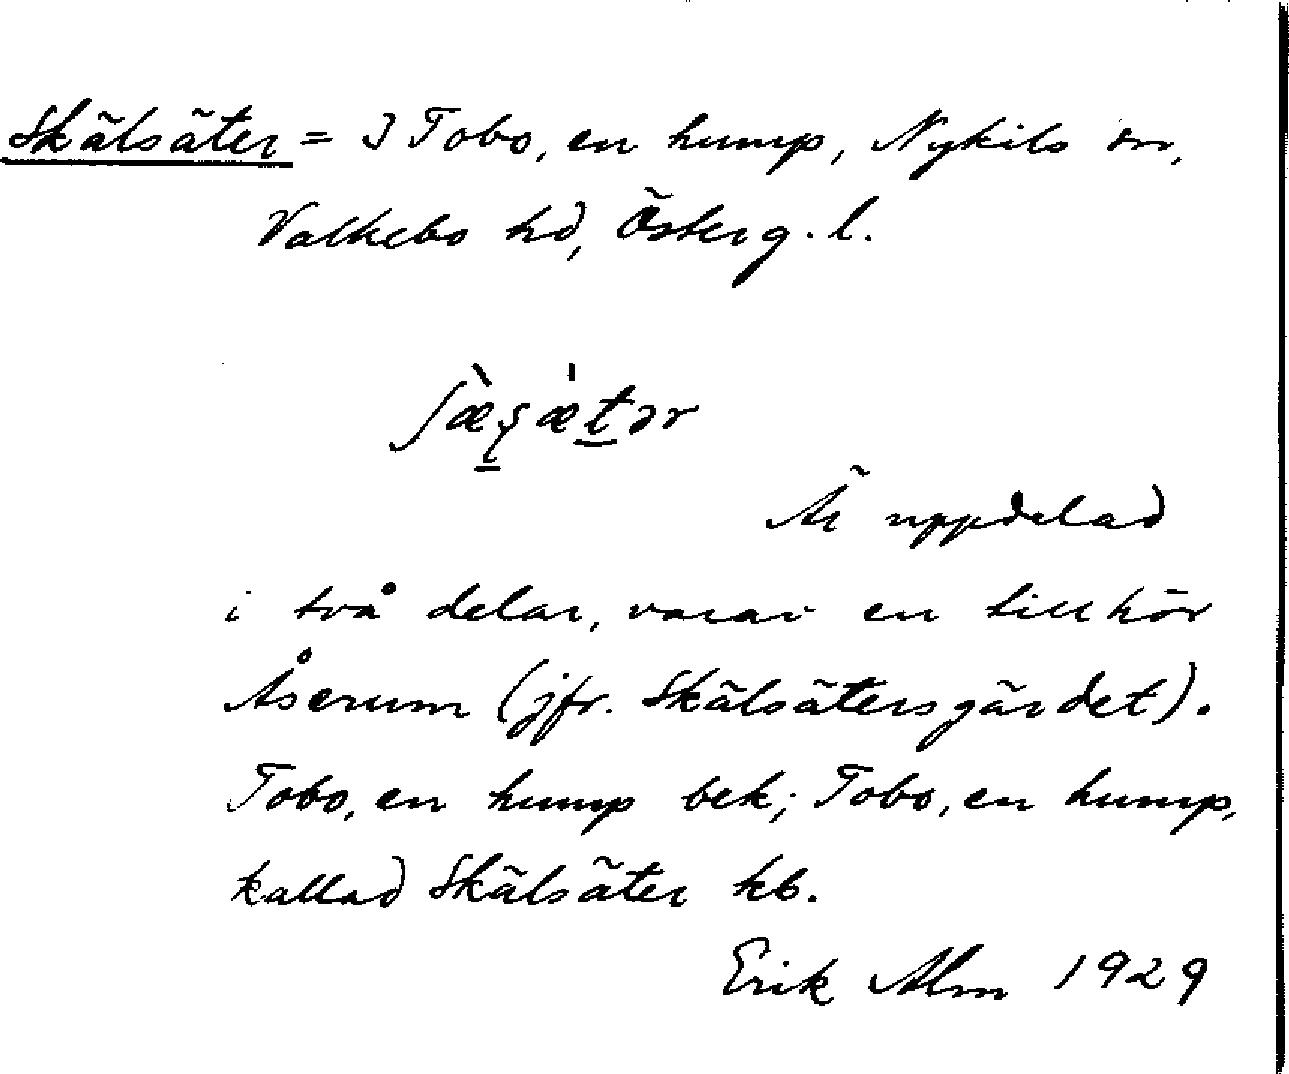 Skälsäter = I Tobo, en hump, Nykils sn,
Valkebo hd, Österg. l.
ʃæ̀ʂæ̍tər
Är uppdelad
i två delar, varav en tillhör
Åserum (jfr. Skälsätersgärdet).
Tobo, en hump bek; Tobo, en hump,
kallad Skälsäter kb.
Erik Alm 1929